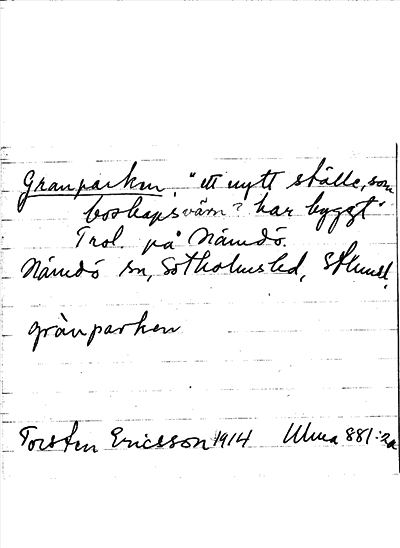 Granparken, "ett nytt ställe, som
boskapsvärn? har byggt"
Trol. på Nämdö.
Nämdö sn, Sotholms hd, Sthms l.
grànparken
Torsten Ericsson 1914 Ulma 881:2a